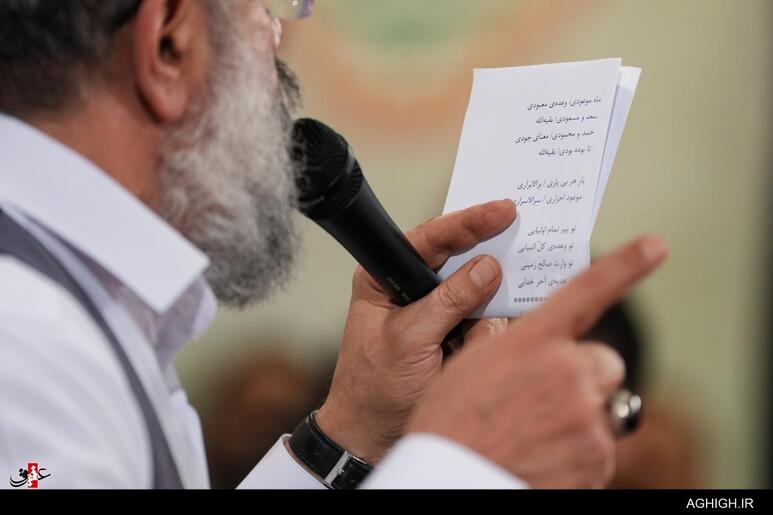 ماه موعودی/ وعده‌ی معبودی
سعد و مسعودی/ بقیه‌الله
حمد و محمودی/ معنای جودی
تا بوده بودی/ بقیه‌الله
یار هر بی یاری / برالابراری
موعود احراری / سرالاسراری
تو پیر تمام اولیایی
تو وعده‌ی کلّ انبیایی
تو وارث صالح زمینی
هدیه‌ی آخر خدایی
عقیق
AGHIGH.IR